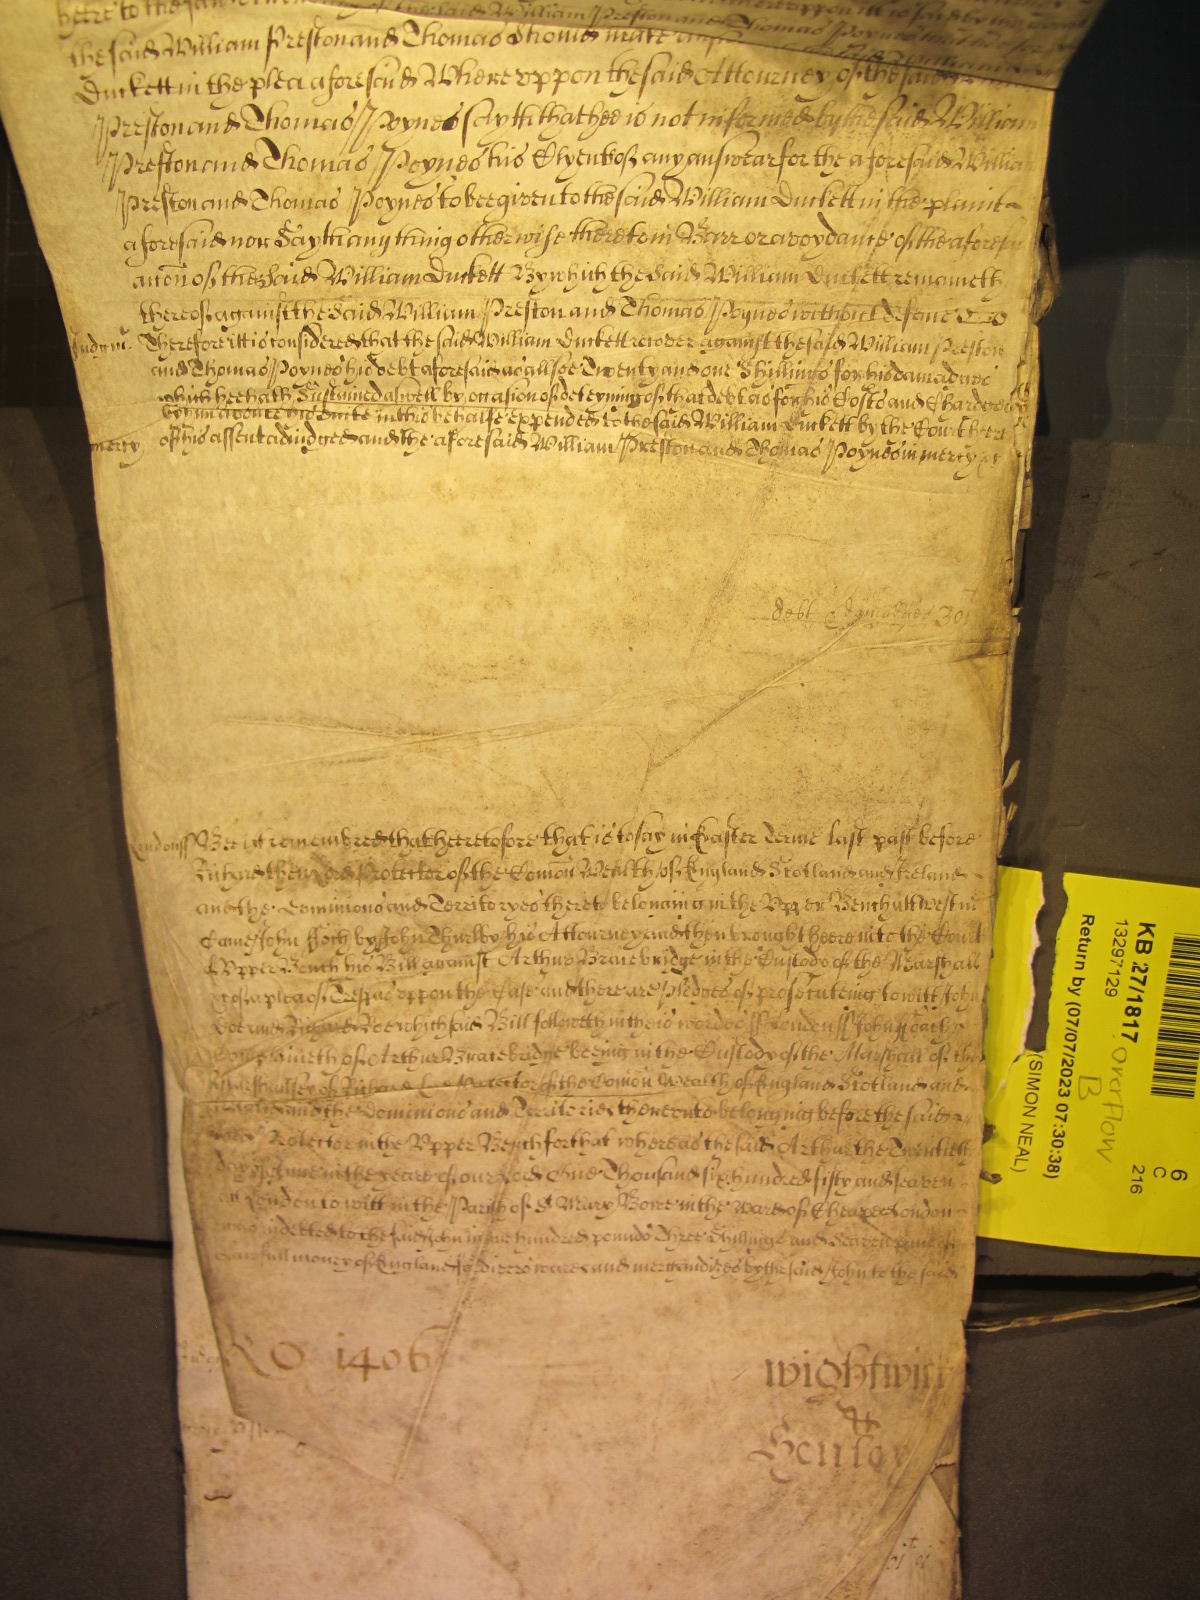 the said William Preston and Thomas Poynes make
Duckett in the plea aforesaid Whereuppon the said Attourney of the said
Preston and Thomas Poynes sayth that hee is not informed by the said William
Preston and Thomas Poynes his Clyents of any answear for the aforesaid Willia
Preston and Thomas Poynes to bee given to the said William Duckett in the plaint
aforesaid nor Sayth any thing otherwise thereto in Barr or avoydance of the aforesa
accon of the said William Duckett By which the said William Duckett remaineth
thereof against the said William Preston and Thomas Poynes without defence
Judgmt. Therefore itt is considered that the said William Duckett recover against the said William Preston
and Thomas Poynes his debt aforesaid as allsoe Twenty and one Shillings for his damadges
which hee hath Sustained aswell by occasion of deteyning of that debt as for his Costs and Chardges
by him about his suite in this behalfe expended to the said William Duckett by the Court heere
mercy of his assent adiudged and the aforesaid William Preston and Thomas Poynes in mercy &c
debt & damadges 301
Londonss Bee it remembred that heeretofore that is to say in Easter Terme last past before
Richard then Lord Protector of the Comon Wealth of England Scotland and Ireland
and the Dominions and Territoryes thereto belonging in the Upper Bench att Westmr
Came John by John Thurlby his Attourney and then brought heere into the Court
Upper Bench his Bill against Arthur Bracebridge in the Custody of the Marshall
&c of a plea of Trespas uppon the Case and there are Pledges of prosecuteing to witt John
Doe and Richard Roe which said Bill followeth in theis wordes ss Londonss John
Complaineth of Arthur Bracebridge beeing in the Custody of the Marshall of the
Marshallsey of Richard Lord Protector of the Comon Wealth of England Scotland and
Ireland and the Dominions and Territories thereunto belonging before the said
Lord Protector in the Upper Bench for that whereas the said Arthur the Twentieth
day of June in the yeare of our Lord One Thousand six hundred fifty and seaven
att London to witt in the Parish of St Mary Bowe in the ward of Cheape London
was indebted to the said John in one hundred pounds Three Shillings and Seaven pence of
lawfull money of England for divers wares and merchandizes by the said John to the said
RO 1406
Wightwick
&
Henley
KB 27/1817
13297129
Return by (07/07/2023 07:30:38)
(SIMON NEAL)
overflow
B
6
C
216